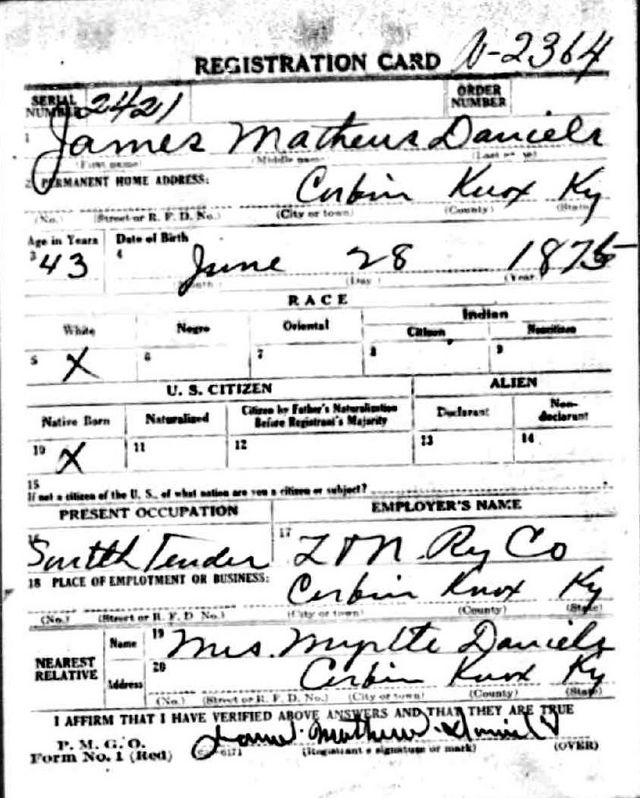 REGISTRATION CARD N-2364
SERIAL NUMBER 2421 ORDER NUMBER
1 James Mathews Daniels
(First name) (Middle name) (Last name)
2 PERMANENT HOME ADDRESS:
Corbin Knox Ky
(No.) (Street or R. F. D. No.) (City or town) (County) (State)
Age in Years Date of Birth
3 43 4 June 28 1875
(Month) (Day) (Year)
RACE
White Negro Oriental Indian
Citizen Noncitizen
5 X 6 7 8 9
U. S. CITIZEN ALIEN
Native Born Naturalized Citizen by Father's Naturalization Before Registrant's Majority Declarant Non-declarant
10 X 11 12 13 14
15
If not a citizen of the U. S., of what nation are you a citizen or subject?
PRESENT OCCUPATION EMPLOYER'S NAME
16 Tender 17 L & N. Ry Co
18 PLACE OF EMPLOYMENT OR BUSINESS:
Corbin Knox Ky
(No.) (Street or R. F. D. No.) (City or town) (County) (State)
NEAREST RELATIVE Name 19 Mrs. Myrtle Daniels
Address 20 Corbin Knox Ky
(No.) (Street or R. F. D. No.) (City or town) (County) (State)
I AFFIRM THAT I HAVE VERIFIED ABOVE ANSWERS AND THAT THEY ARE TRUE
P. M. G. O.
Form No. 1 (Red) James Mathew Daniels
(Registrant's signature or mark) (OVER)